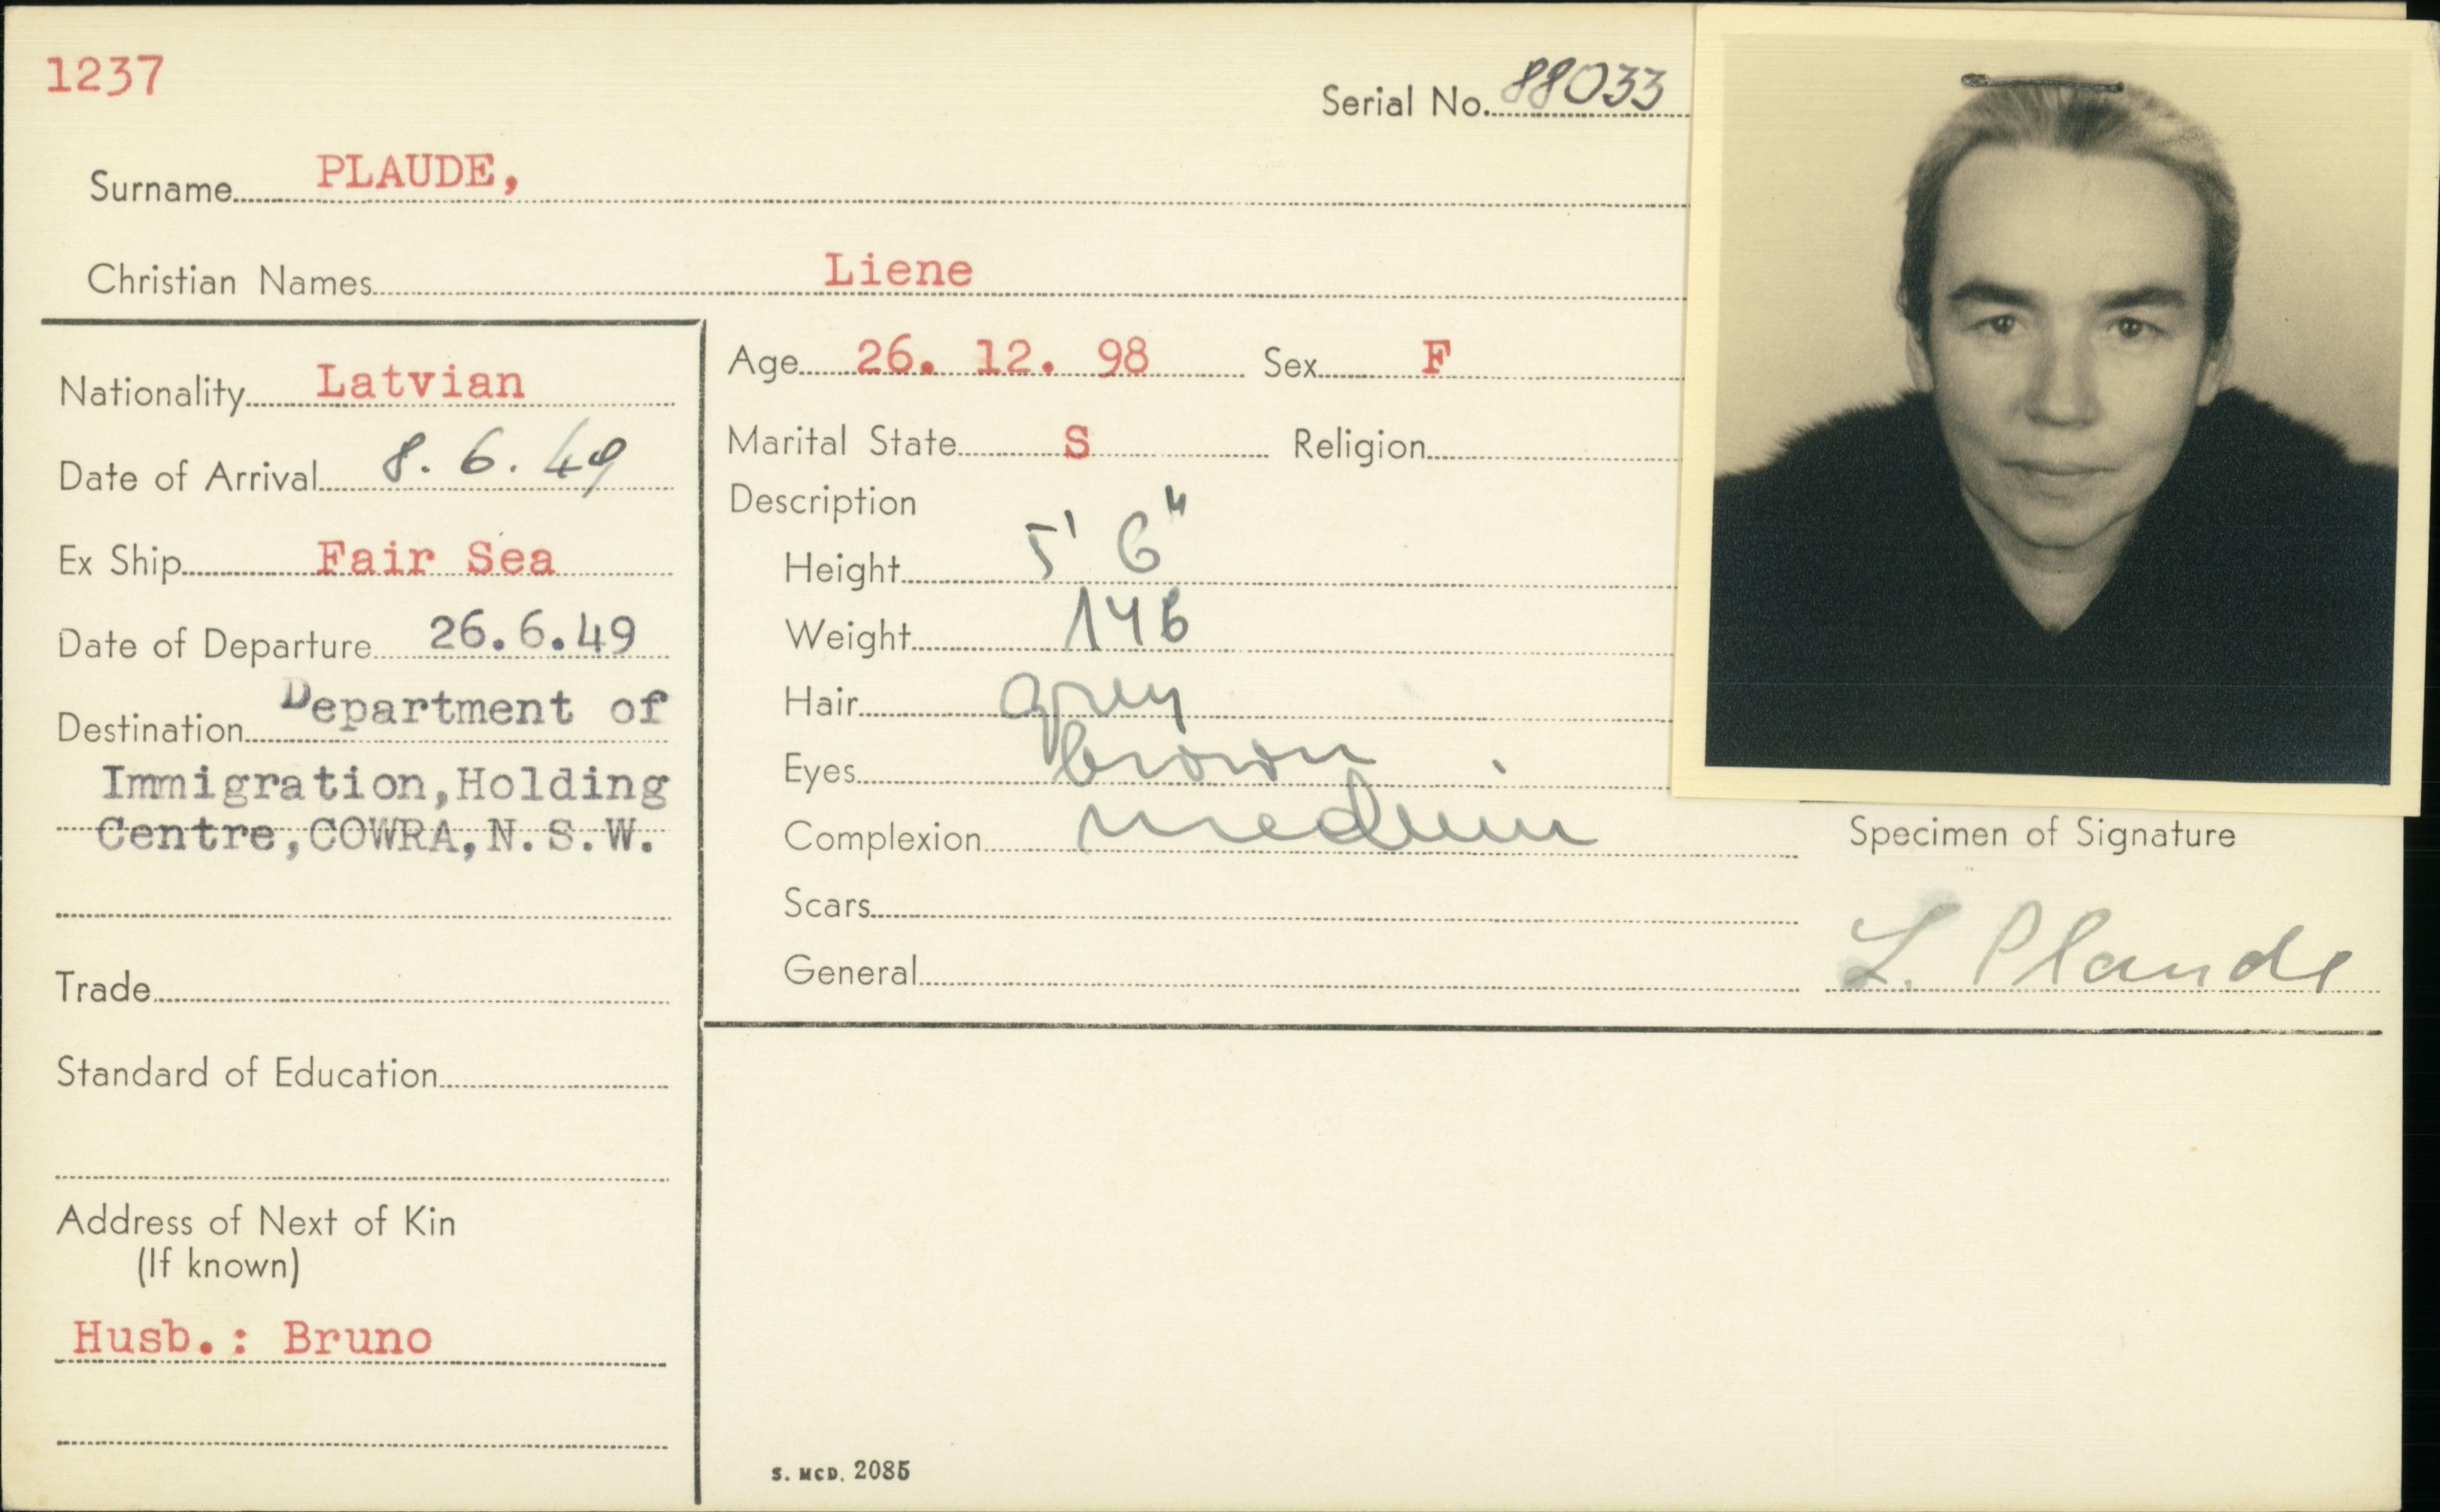 1237
Serial No. 88033
Surname PLAUDE,
Christian Names Liene
Nationality Latvian
Date of Arrival 8. 6. 49
Ex Ship Fair Sea
Date of Departure 26.6.49
Destination Department of
Immigration,Holding
Centre,COWRA,N.S.W.
Trade
Standard of Education
Address of Next of Kin
(If known)
Husb.: Bruno
Age 26. 12. 98 Sex F
Marital State S Religion
Description
Height 5' 6"
Weight 146
Hair grey
Eyes brown
Complexion medium
Scars
General
Specimen of Signature
L. Plaude
S. MCD. 2085